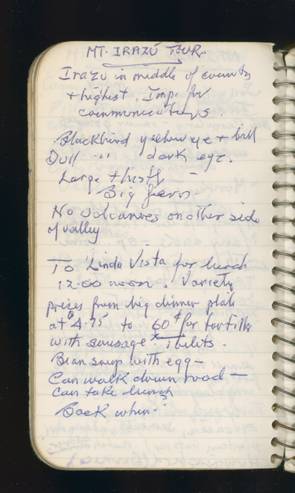 MT. IRAZÚ TOUR
Irazu in middle of country
+ highest. Imp. for
communications.
Blackbird yellow eye + bill
Dull " " dark eye.
Large thrush –
Big fern
No volcanoes on other side
of valley
To Linda Vista for lunch
12:00 noon. Variety
prices from big dinner plate
at $4.75 to 60¢ for tortilla
with sausage
Bean soup with egg –
Can walk down road –
Can take lunch
Back when?